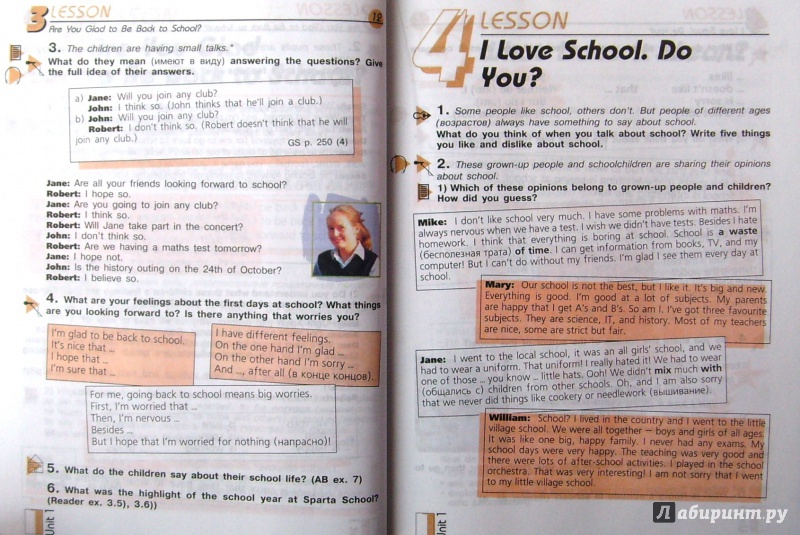 3 LESSON
Are You Glad to Be Back to School?
3. The children are having small talks.*
What do they mean (имеют в виду) answering the questions? Give
the full idea of their answers.
a) Jane: Will you join any club?
John: I think so. (John thinks that he'll join a club.)
b) John: Will you join any club?
Robert: I don't think so. (Robert doesn't think that he will
join any club.)
GS p. 250 (4)
Jane: Are all your friends looking forward to school?
Robert: I hope so.
Jane: Are you going to join any club?
Robert: I think so.
Robert: Will Jane take part in the concert?
John: I don't think so.
Robert: Are we having a maths test tomorrow?
Jane: I hope not.
John: Is the history outing on the 24th of October?
Robert: I believe so.
4. What are your feelings about the first days at school? What things
are you looking forward to? Is there anything that worries you?
I'm glad to be back to school.
It's nice that ...
I hope that ...
I'm sure that ...
I have different feelings.
On the one hand I'm glad ...
On the other hand I'm sorry ...
And ..., after all (в конце концов).
For me, going back to school means big worries.
First, I'm worried that ...
Then, I'm nervous ...
Besides ...
But I hope that I'm worried for nothing (напрасно)!
5. What do the children say about their school life? (AB ex. 7)
6. What was the highlight of the school year at Sparta School?
(Reader ex. 3.5), 3.6))
Unit 1
4 LESSON
I Love School. Do
You?
1. Some people like school, others don't. But people of different ages
(возрастов) always have something to say about school.
What do you think of when you talk about school? Write five things
you like and dislike about school.
2. These grown-up people and schoolchildren are sharing their opinions
about school.
1) Which of these opinions belong to grown-up people and children?
How did you guess?
Mike: I don't like school very much. I have some problems with maths. I'm
always nervous when we have a test. I wish we didn't have tests. Besides I hate
homework. I think that everything is boring at school. School is a waste
(бесполезная трата) of time. I can get information from books, TV, and my
computer! But I can't do without my friends. I'm glad I see them every day at
school.
Mary: Our school is not the best, but I like it. It's big and new.
Everything is good. I'm good at a lot of subjects. My parents
are happy that I get A's and B's. So am I. I've got three favourite
subjects. They are science, IT, and history. Most of my teachers
are nice, some are strict but fair.
Jane: I went to the local school, it was an all girls' school, and we
had to wear a uniform. That uniform! I really hated it! We had to wear
one of those ... you know ... little hats. Ooh! We didn't mix much with
(общались с) children from other schools. Oh, and I am also sorry
that we never did things like cookery or needlework (вышивание).
William: School? I lived in the country and I went to the little
village school. We were all together – boys and girls of all ages.
It was like one big, happy family. I never had any exams. My
school days were very happy. The teaching was very good and
there were lots of after-school activities. I played in the school
orchestra. That was very interesting! I am not sorry that I went
to my little village school.
Unit 1
Лабиринт.ру